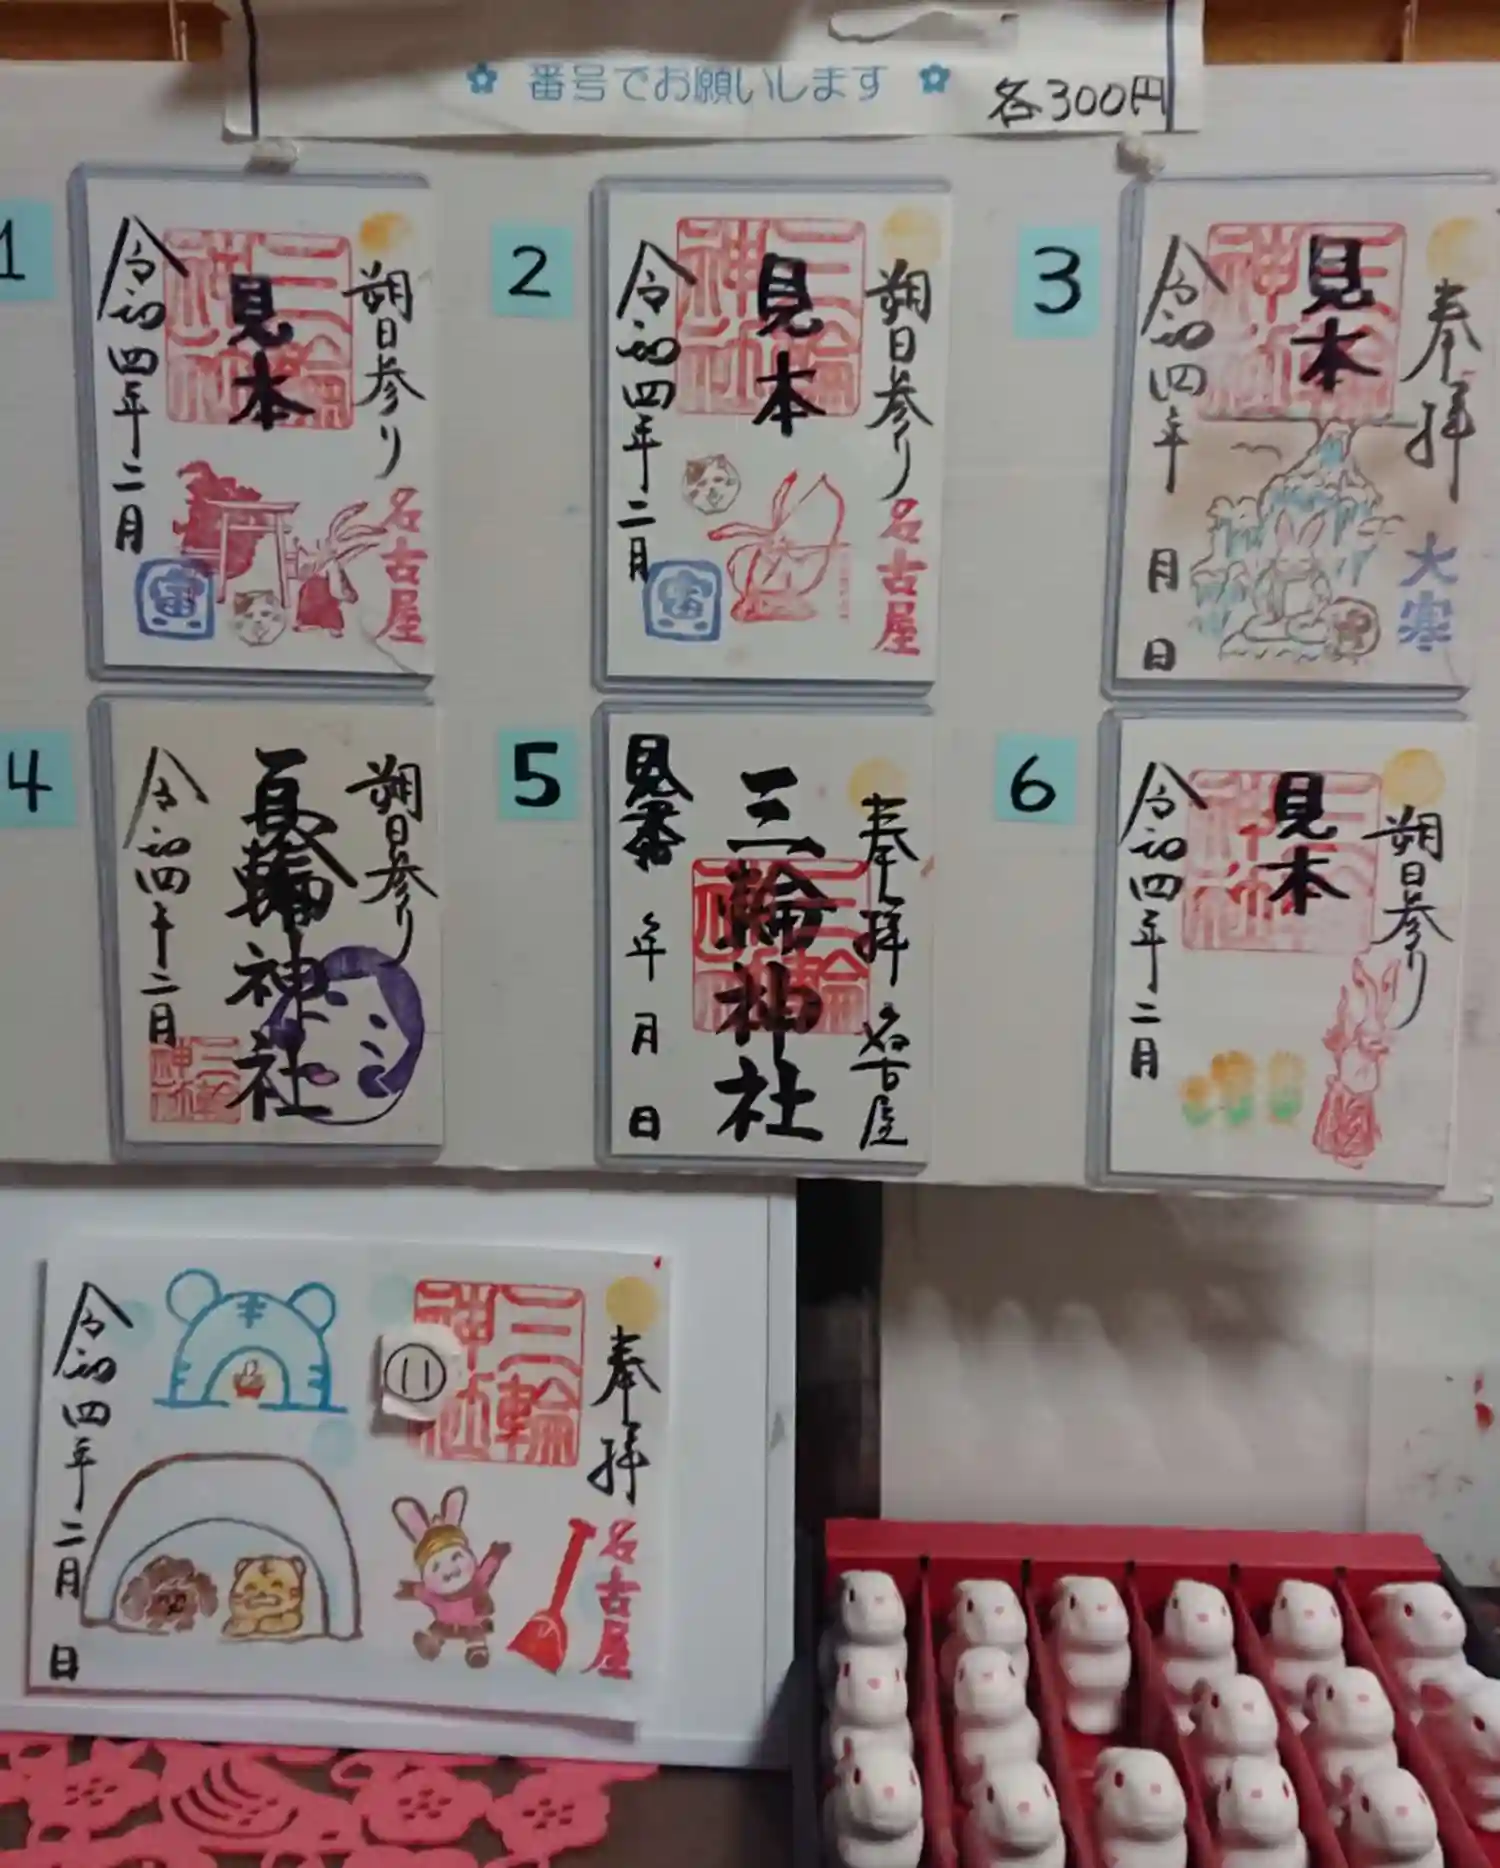 番号でお願いします 各300円
1
朔日参り
三輪神社
見本
令和四年二月
名古屋
寅
2
朔日参り
三輪神社
見本
令和四年二月
名古屋
寅
3
奉拝
三輪神社
見本
令和四年 月 日
大寒
4
朔日参り
輪神社
令和四年十二月
三輪神社
5
奉拝 名古屋
三輪神社
三輪神社
年 月 日
6
朔日参り
三輪神社
見本
令和四年二月
奉拝
名古屋
三輪神社
11
令和四年二月 日